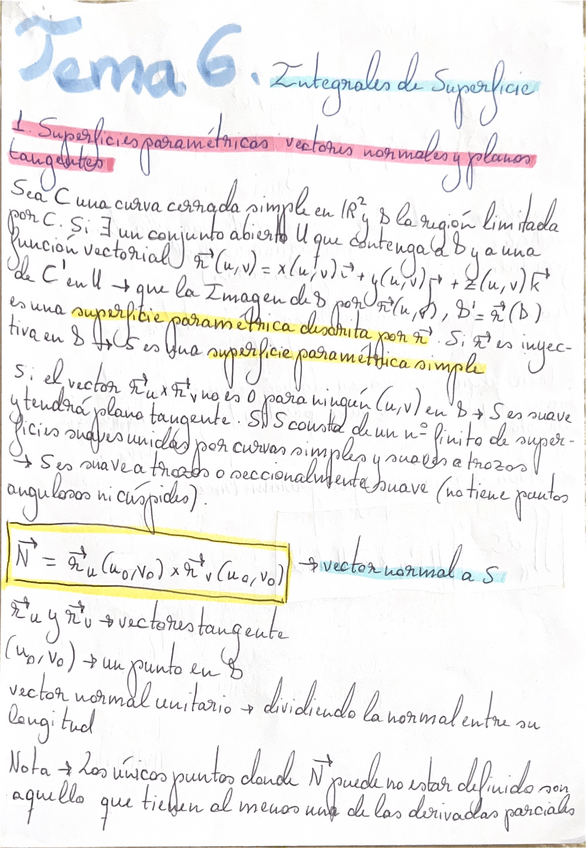 Tema 6. Integrales de Superficie
1. Superficies paramétricas, vectores normales y planos
tangentes
Sea C una curva cerrada simple en ℝ² y S la región limitada
por C. Si ∃ un conjunto abierto U que contenga a S y a una
función vectorial r⃗(u,v) = x(u,v)i⃗ + y(u,v)j⃗ + z(u,v)k⃗
de C' en U → que la Imagen de S por r⃗(u,v), S' = r⃗(D)
es una superficie paramétrica descrita por r⃗. Si r⃗ es inyec-
tiva en S → S es una superficie paramétrica simple
Si el vector r⃗u x r⃗v no es 0 para ningún (u,v) en S → S es suave
y tendrá plano tangente. Si S consta de un nº finito de super-
ficies suaves unidas por curvas simples y suaves a trozos
→ S es suave a trozos o seccionalmente suave (no tiene puntos
angulosos ni cúspides).
N⃗ = r⃗u (u₀,v₀) x r⃗v (u₀,v₀) → vector normal a S
r⃗u y r⃗v → vectores tangente
(u₀,v₀) → un punto en S
vector normal unitario → dividiendo la normal entre su
longitud
Nota → Los únicos puntos donde N⃗ puede no estar definido son
aquello que tienen al menos una de las derivadas parciales